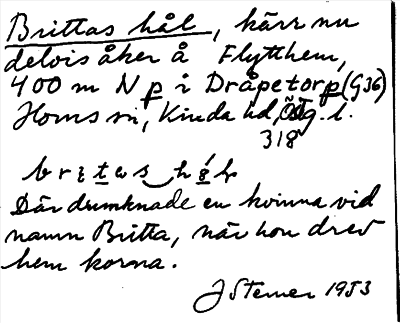 Brittas hål, kärr nu
delvis åker å Flytthem,
400 m N p i Dråpetorp (G36)
Horns sn, Kinda hd, Ög. l.
318
Där drunknade en kvinna vid
namn Britta, när hon drev
hem korna.
J Sterner 1953